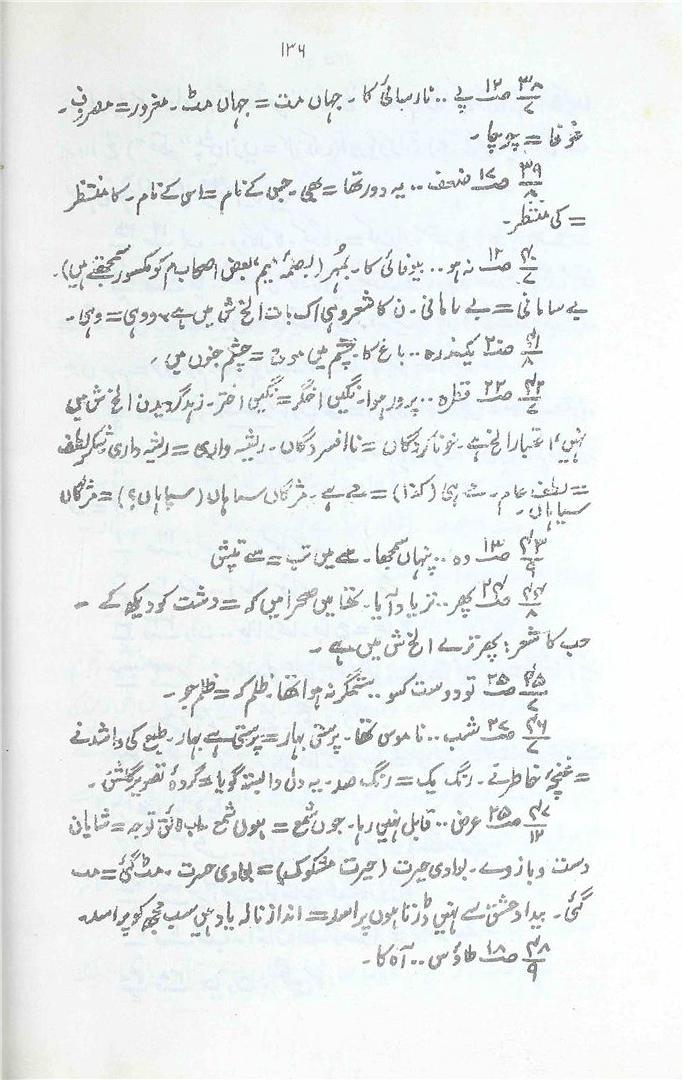 ۱۳۶
۳۸/۷ صـ ۱۲ پے ۰۰ نارسائی کا۔ جہاں مت = جہاں مٹ۔ مغرور = مصروف۔
غوغا = چرچا۔
۳۹/۸ صـ ۱۷ ضعف ۰۰ یہ دور تھا = بھی۔ جس کے نام = اس کے نام۔ کا منتظر
= کی منتظر۔
۴۰/۷ صـ ۱۲ نہ ہو ۰۰ بیوفائی کا۔ مُہر (بضمۂ میم، بعض اصحاب م کو مکسور سمجھتے ہیں)۔
بے سامانی = بے مامانی۔ ن کا شعر وہی اک بات الخ ش میں ہے، ووہی = وہی۔
۴۱/۸ صـ ۲۰ یک ذرہ ۰۰ باغ کا۔ چشم میں = چشم جنوں میں۔
۴۲/۷ صـ ۲۲ قطرہ ۰۰ پرور ہوا۔ نگیں اخگر = نگیں اختر۔ زہد گردیدن الخ ش میں
نہیں، اعتبار الخ ہے۔ = نا افسردگاں۔ ریشہ واری = ریشہ داری۔ شکر لطف
= لطف عام۔ ہے ہی (کذا) = ہے ہے۔ مژگاں سیاہاں (سپاہاں؟) = مژگاں
سیاہاں۔
۴۳/۹ صـ ۱۳ دہ ۰۰ پنہاں سمجھا۔ سے میں تپ = سے تپش
۴۴/۸ صـ ۲۴ پھر ۰۰ تر یاد آیا۔ تھا میں صحرا میں کہ = دشت کو دیکھ کے۔
حب کا شعر: پھر ترے الخ ش میں ہے۔
۴۵/۷ صـ ۲۵ تو دوست کسو ۰۰ ستمگر نہ ہوا تھا۔ ظلم کہ = ظلم جو۔
۴۶/۷ صـ ۲۷ شب ۰۰ ناموس تھا۔ پرستی بہار = پرستی ہے بہار۔ طبع کی واشد نے
= غنچۂ خاطر نے۔ رنگ یک = رنگ صد۔ یہ دل وابستہ گویا = گردۂ تصویر گلشن۔
۴۷/۱۲ صـ ۲۵ عرض ۰۰ قابل نہیں رہا۔ جوں شمع = ہوں شمع۔ لائق توجہ = شایان
دست و بازوے۔ بوادی حیرت (حیرت مشکوک) = بوادی حسرت۔ مٹ گئی = مت
گئی۔ بیداد عشق سے نہیں ڈرتا ہوں پر اسد = انداز نالہ یاد ہیں سب مجھ کو پر اسد۔
۴۸/۹ صـ ۱۸ طاؤس ۰۰ آہ کا۔